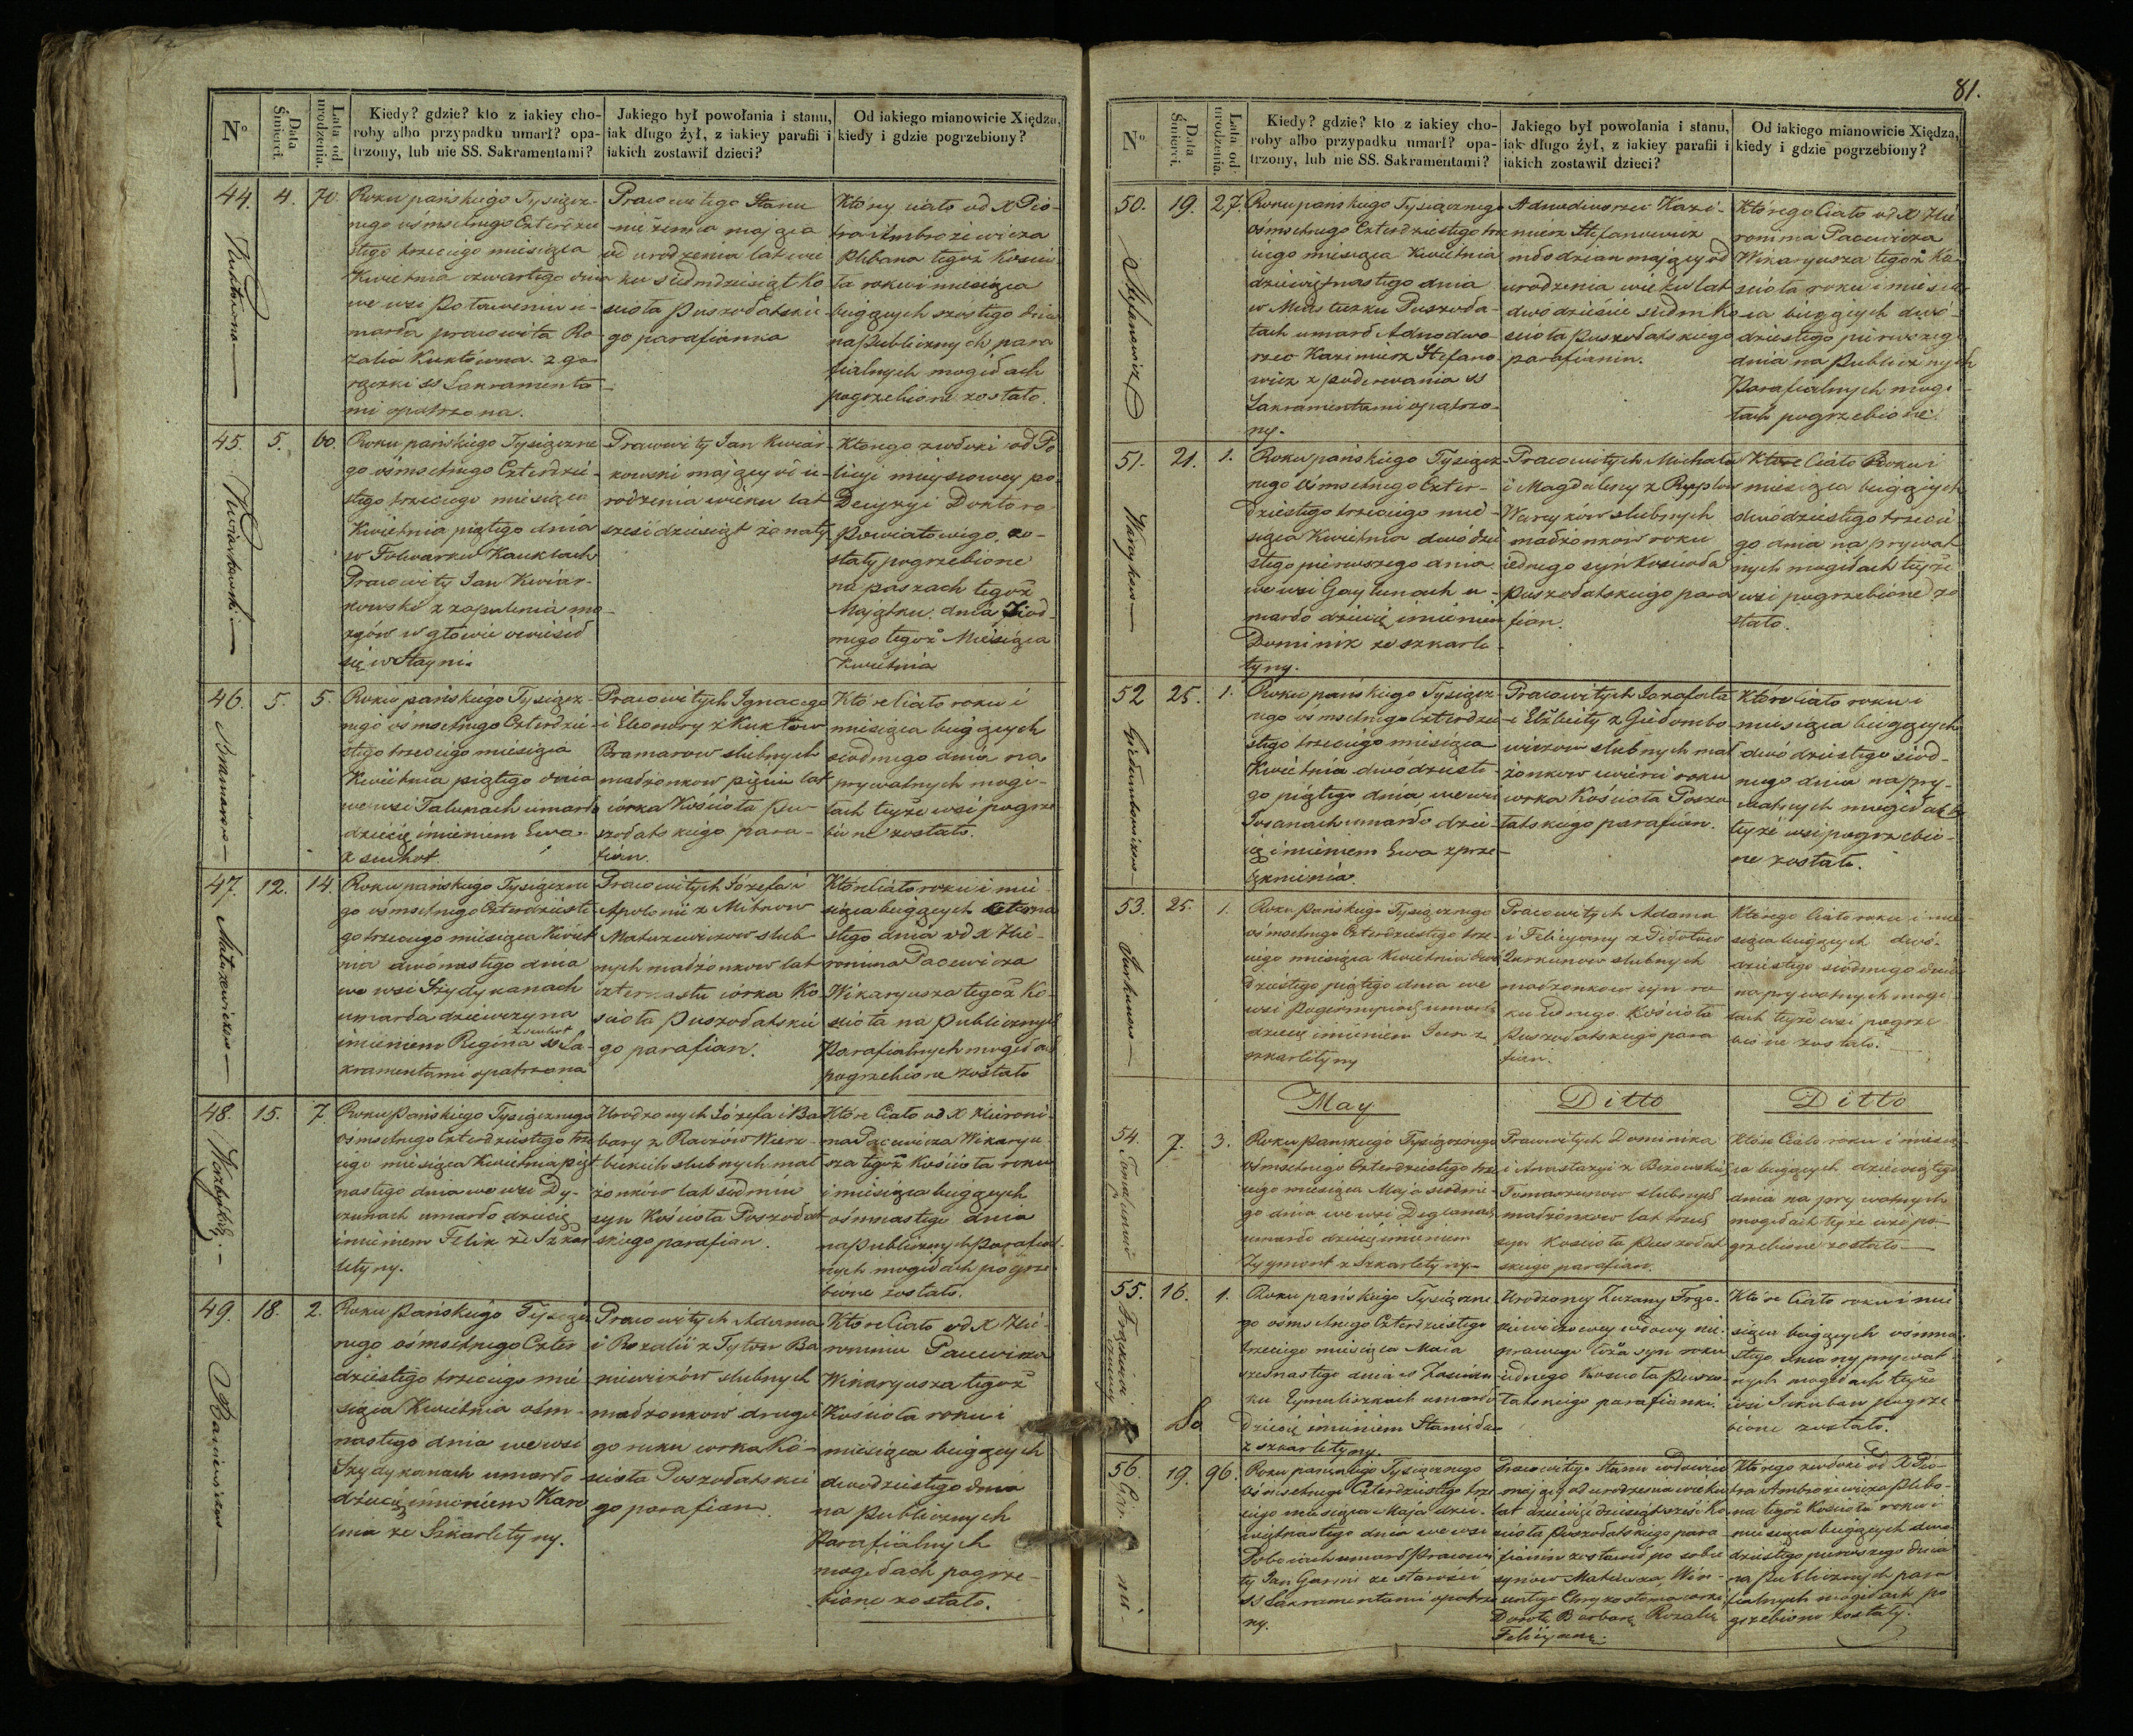 N°
Data Śmierci.
Lata od urodzenia.
Kiedy? gdzie? kto z iakiey cho-
roby albo przypadku umarł? opa-
trzony, lub nie SS. Sakramentami?
Jakiego był powołania i stanu,
iak długo żył, z iakiey parafii i
iakich zostawił dzieci?
Od iakiego mianowicie Xiędza,
kiedy i gdzie pogrzebiony?
44. 4. 70.
Roku pańskiego Tysiącz-
nego ośmsetnego Czterdzie
stego trzeciego miesiąca
Kwietnia czwartego dnia
we wsi
marła pracowita Ro
zalia Kuktówna z go-
rączki SS Sakramenta
mi opatrzona.
Pracowitego Stanu
mająca
od urodzenia lat wie
ku siedmdziesiąt Ko
scioła Puszołatskie
go parafianka
Który ciało od X Pio-
tra Ambrożewicza
Plebana tegoż Kościo
ła roku i miesiąca
bieżących szóstego dnia
na Publicznych para
fialnych mogiłach
pogrzebione zostało.
45. 5. 60.
Kwiatkowski
Roku pańskiego Tysiączne
go ośmsetnego Czterdzie-
stego trzeciego miesiąca
Kwietnia piątego dnia
w Folwarku Kauklach
Pracowity Jan Kwiat-
kowski z zapalenia mo-
zgów w głowie
się w Stayni.
Pracowity Jan Kwiat-
kowski mający od u-
rodzenia wieku lat
sześćdziesiąt żonaty
Ktorego zwłoki od Po
licyi mieyscowey po
Decyzyi Doktora
Powiatowego zo-
stały pogrzebione
na paszach tegoż
Majątku dnia Siod-
mego tegoż Miesiąca
Kwietnia
46. 5. 5.
Bramarow
Roku pańskiego Tysiącz-
nego ośmsetnego Czterdzie-
stego trzeciego miesiąca
Kwietnia piątego dnia
we wsi Talunach umarło
dziecię imieniem Ewa
z suchot
Pracowitych Ignacego
i Eleonory z Kuktow
Bramarow slubnych
małżonkow pięciu lat
córka Kościoła Pu-
szołatskiego para-
fian.
Które Ciało roku i
miesiąca bieżących
siodmego dnia na
prywatnych mogi-
łach teyże wsi pogrze
bione zostało.
47. 12. 14.
Matuzewiczow
Roku pańskiego Tysiączne
go ośmsetnego Czterdzieste
go trzeciego miesiąca Kwiet
nia dwónastego dnia
we wsi Szydykanach
umarła dziewczyna
z suchot
imieniem Regina SS Sa-
kramentami opatrzona
Pracowitych Józefa i
Apolonii z Mitrow
Matuzewiczow slub
nych małżonkow lat
czternastu córka Ko
scioła Puszołatskie
go parafian.
Które Ciało roku i mie
siąca bieżących czterna
stego dnia od X Hie-
ronima Pacewicza
Wikaryusza tegoż Ko-
scioła na Publicznych
Parafialnych mogiłach
pogrzebione zostało
48. 15. 7.
Wierzbickich
Roku Pańskiego Tysiącznego
ośmsetnego Czterdziestego trze
ciego miesiąca Kwietnia pięt
nastego dnia we wsi Dy-
czunach umarło dziecię
imieniem Felix ze Szkar
letyny.
Urodzonych Józefa i Ba
bary z Raczów Wierz-
bickich slubnych mał
żonków lat siedmiu
syn Kościoła Poszołat
skiego parafian.
Które Ciało od X Hieroni-
ma Pacewicza Wikaryu
sza tegoż Kościoła roku
i miesiąca bieżących
ośmnastego dnia
na Publicznych Parafial-
nych mogiłach pogrze
bione zostało.
49. 18. 2.
Baniewiczow
Roku Pańskiego Tysiącz
nego ośmsetnego Czter
dziestego trzeciego mie
siąca Kwietnia ośm-
nastego dnia we wsi
Szydykanach umarło
dziecię imieniem Karo
lina ze Szkarletyny.
Pracowitych Adama
i Rozalii z Tytow Ba
niewiczów slubnych
małżonkow drugie
go roku córka Ko-
scioła Poszołatskie
go parafian.
Które Ciało od X Hie-
ronima Pacewicza
Wikaryusza tegoż
Kościoła roku i
miesiąca bieżących
dwodziestego dnia
na Publicznych
Parafialnych
mogiłach pogrze-
bione zostało.
81.
N°
Data Śmierci.
Lata od urodzenia.
Kiedy? gdzie? kto z iakiey cho-
roby albo przypadku umarł? opa-
trzony, lub nie SS. Sakramentami?
Jakiego był powołania i stanu,
iak długo żył, z iakiey parafii i
iakich zostawił dzieci?
Od iakiego mianowicie Xiędza,
kiedy i gdzie pogrzebiony?
50. 19. 27.
Stefanowicz
Roku pańskiego Tysiącznego
ośmsetnego Czterdziestego trze
ciego miesiąca Kwietnia
dziewiętnastego dnia
w Miasteczku Puszoła-
tach umarł Adnodwo-
rzec Kazimierz Stefano
wicz z poderwania SS
Sakramentami opatrzo-
ny.
Adnodworzec Kazi-
mierz Stefanowicz
młodzian mający od
urodzenia wieku lat
dwódzieście siedm Ko
scioła Puszołatskiego
parafianin.
Którego Ciało od X Hie
ronima Pacewicza
Wikaryusza tegoż Ko-
scioła roku i miesią
ca bieżących dwó-
dziestego pierwszego
dnia na Publicznych
Parafialnych mogi
łach pogrzebione.
51. 21. 1.
Warnykow
Roku pańskiego Tysiącz
nego ośmsetnego Czter-
dziestego trzeciego mie-
siąca Kwietnia dwódzie
stego pierwszego dnia
we wsi Gaytunach u-
marło dziecię imieniem
Dominik ze szkarle-
tyny.
Pracowitych Michała
i Magdaleny z Rypplow
slubnych
małżonkow roku
iednego syn Kościoła
Puszołatskiego para
fian.
Które Ciało Roku i
miesiąca bieżących
dwódziestego trzecie-
go dnia na prywat
nych mogiłach teyże
wsi pogrzebione zo
stało.
52 25. 1.
Giedembowiczow
Roku pańskiego Tysiącz
nego ośmsetnego Czterdzie
stego trzeciego miesiąca
Kwietnia dwódzieste-
go piątego dnia we wsi
Jusanach umarło dzie-
cię imieniem Ewa z prze-
lęknienia.
Pracowitych Jozafata
i Elżbiety z Giedembo-
wiczow slubnych mał
żonkow ćwierć roku
corka Kościoła Poszo
łatskiego parafian.
Które Ciało roku i
miesiąca bieżących
dwódziestego siód-
mego dnia na pry-
watnych mogiłach
teyże wsi pogrzebio-
ne zostało.
53. 25. 1.
Roku Pańskiego Tysiącznego
ośmsetnego Czterdziestego trze-
ciego miesiąca Kwietnia dwó
dziestego piątego dnia we
wsi Pogiermpiach umarło
dziecię imieniem Jan z
szkarletyny
Pracowitych Adama
i Felicyanny z Pidotow
Jurkunow slubnych
małżonkow syn ro
ku iednego Kościoła
Puszołatskiego para
fian.
Którego Ciało roku i mie-
siąca bieżących dwó-
dziestego siódmego dnia
na prywatnych mogi
łach teyże wsi pogrze
bione zostało.
May
Ditto
Ditto
54. 7. 3.
Tomaszunow
Roku Pańskiego Tysiącznego
ośmsetnego Czterdziestego trze
ciego miesiąca Maja siedme-
go dnia we wsi Deglanach
umarło dziecię imieniem
Zygmont z Szkarletyny
Pracowitych Dominika
i Anastazyi z
Tomaszunow slubnych
małżonkow lat trzech
syn Kościoła Puszołat
skiego parafian.
Które Ciało roku i miesią-
ca bieżących dziewiątego
dnia na prywatnych
mogiłach teyże wsi po-
grzebione zostało
55. 16. 1.
Roku pańskiego Tysiączne
go ośmsetnego Czterdziestego
trzeciego miesiąca Maia
szesnastego dnia w Zaścian
ku Cymaliszkach umarło
dziecię imieniem Stanisław
z szkarletyny.
Urodzoney Zuzany Frąc-
kiewiczowey wdowy nie
prawego łoża syn roku
iednego Kościoła Puszo-
łatskiego parafianki.
Które Ciało roku i mie
siąca bieżących ośmna
stego dnia na prywat
nych mogiłach teyże
wsi pogrze
bione zostało.
56. 19. 96.
Roku pańskiego Tysiącznego
Ośmsetnego Czterdziestego trze
ciego miesiąca Maja dzie-
więtnastego dnia we wsi
umarł Pracowi
ty Jan ze starości
SS Sakramentami opatrzo
ny.
Pracowitego Stanu wdowiec
mający od urodzenia wieku
lat dziewięćdziesiąt sześć Ko
scioła Puszołatskiego para
fianin zostawił po sobie
synow Mateusza, Win-
centego Chryzostoma corki
Dorotę Barbarę Rozalię
Felicyanę.
Którego zwłoki od X Pio-
tra Ambrożewicza Pleba-
na tegoż Kościoła roku i
miesiąca bieżących dwo
dziestego pierwszego dnia
na Publicznych para
fialnych mogiłach po
grzebione zostały.